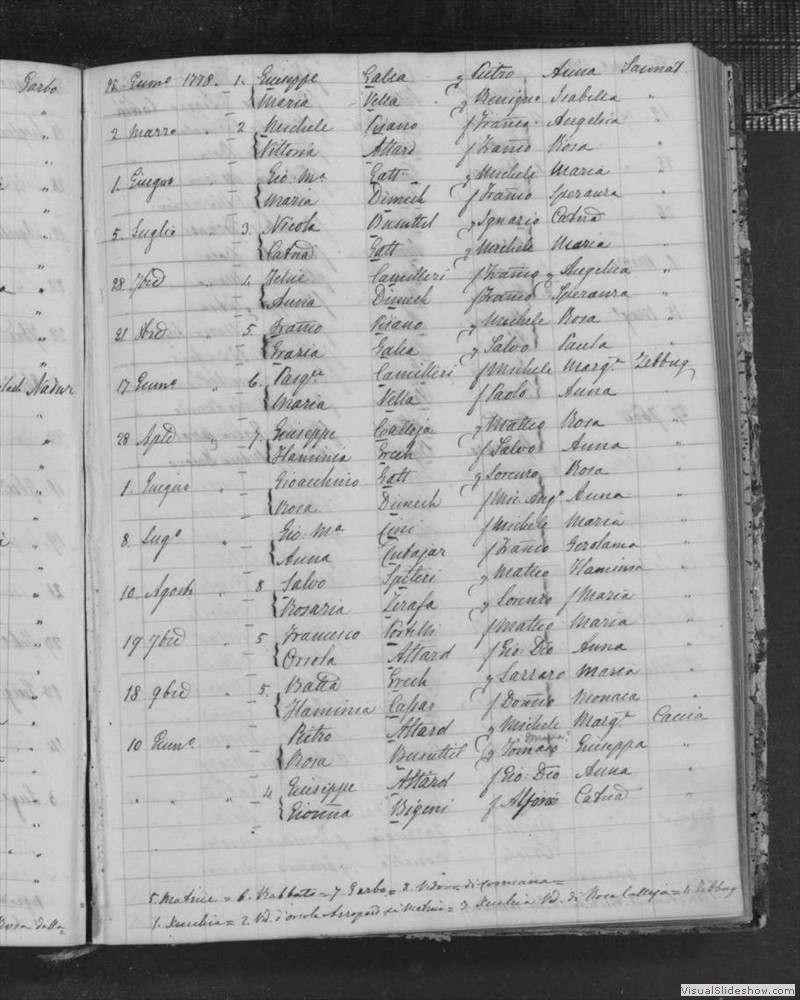 Garbo
26 Genn° 1778. 1. Giuseppe Galea q Pietro Anna Sannat
Maria Vella q Benigno Isabella "
2 Marzo " 2 Michele Pisano f Franco Angelica "
Vittoria Attard f Franco Rosa "
1. Giugno Gio: Ma Gatt q Michele Maria "
Maria Dimech f Franco Speranza "
5. Luglio 3. Nicola Busuttil q Ignazio Catna
Catna Gatt q Michele Maria "
28 7bre 4 Felice Camilleri f Franco q Angelica "
Anna Dimech f Franco Speranza "
21 8bre 5. Franco Pisano q Michele Rosa
Grazia Galea q Salvo Paula "
17 Genn° " 6. Pasqle Camilleri f Michele Margta Zebbug
Nadur
Maria Vella f Paolo Anna "
28 Aple " 7. Giuseppe Calleja q Matteo Rosa "
Flaminia Grech f Salvo Anna "
1. Giugno " Gioacchino Gatt q Lorenzo Rosa "
Rosa Dimech f Mic: Ang° Anna "
8. Lug° " Gio: Ma Cini f Michele Maria "
Anna Cutajar f Franco Gerolama "
10 Agosto " 8 Salvo Spiteri q Matteo Flaminia "
Rosaria Zerafa q Lorenzo f Maria "
19 7bre " 5. Francesco Portelli f Matteo Maria "
Orsola Attard f Gio: Deo Anna "
18 9bre " 5. Batta Grech q Lazzaro Maria "
Flaminia Caspar f Domco Monaca "
10 Genn° " Pietro Attard q Michele Margta Caccia
Rosa Busuttil q Tomaso Giuseppa "
" " 4 Giuseppe Attard f Gio: Deo Anna "
Gionna Bigeni f Alfonso Catna "
5. Matrice = 6. Rabbato = 7. Garbo = 8. Vedovo = di
1. = 2. Vd. d'Orsola di Matrice = 3. Vd. di Rosa Calleja = 4. Zebbug
Rosa dalla =
VisualSlideshow.com